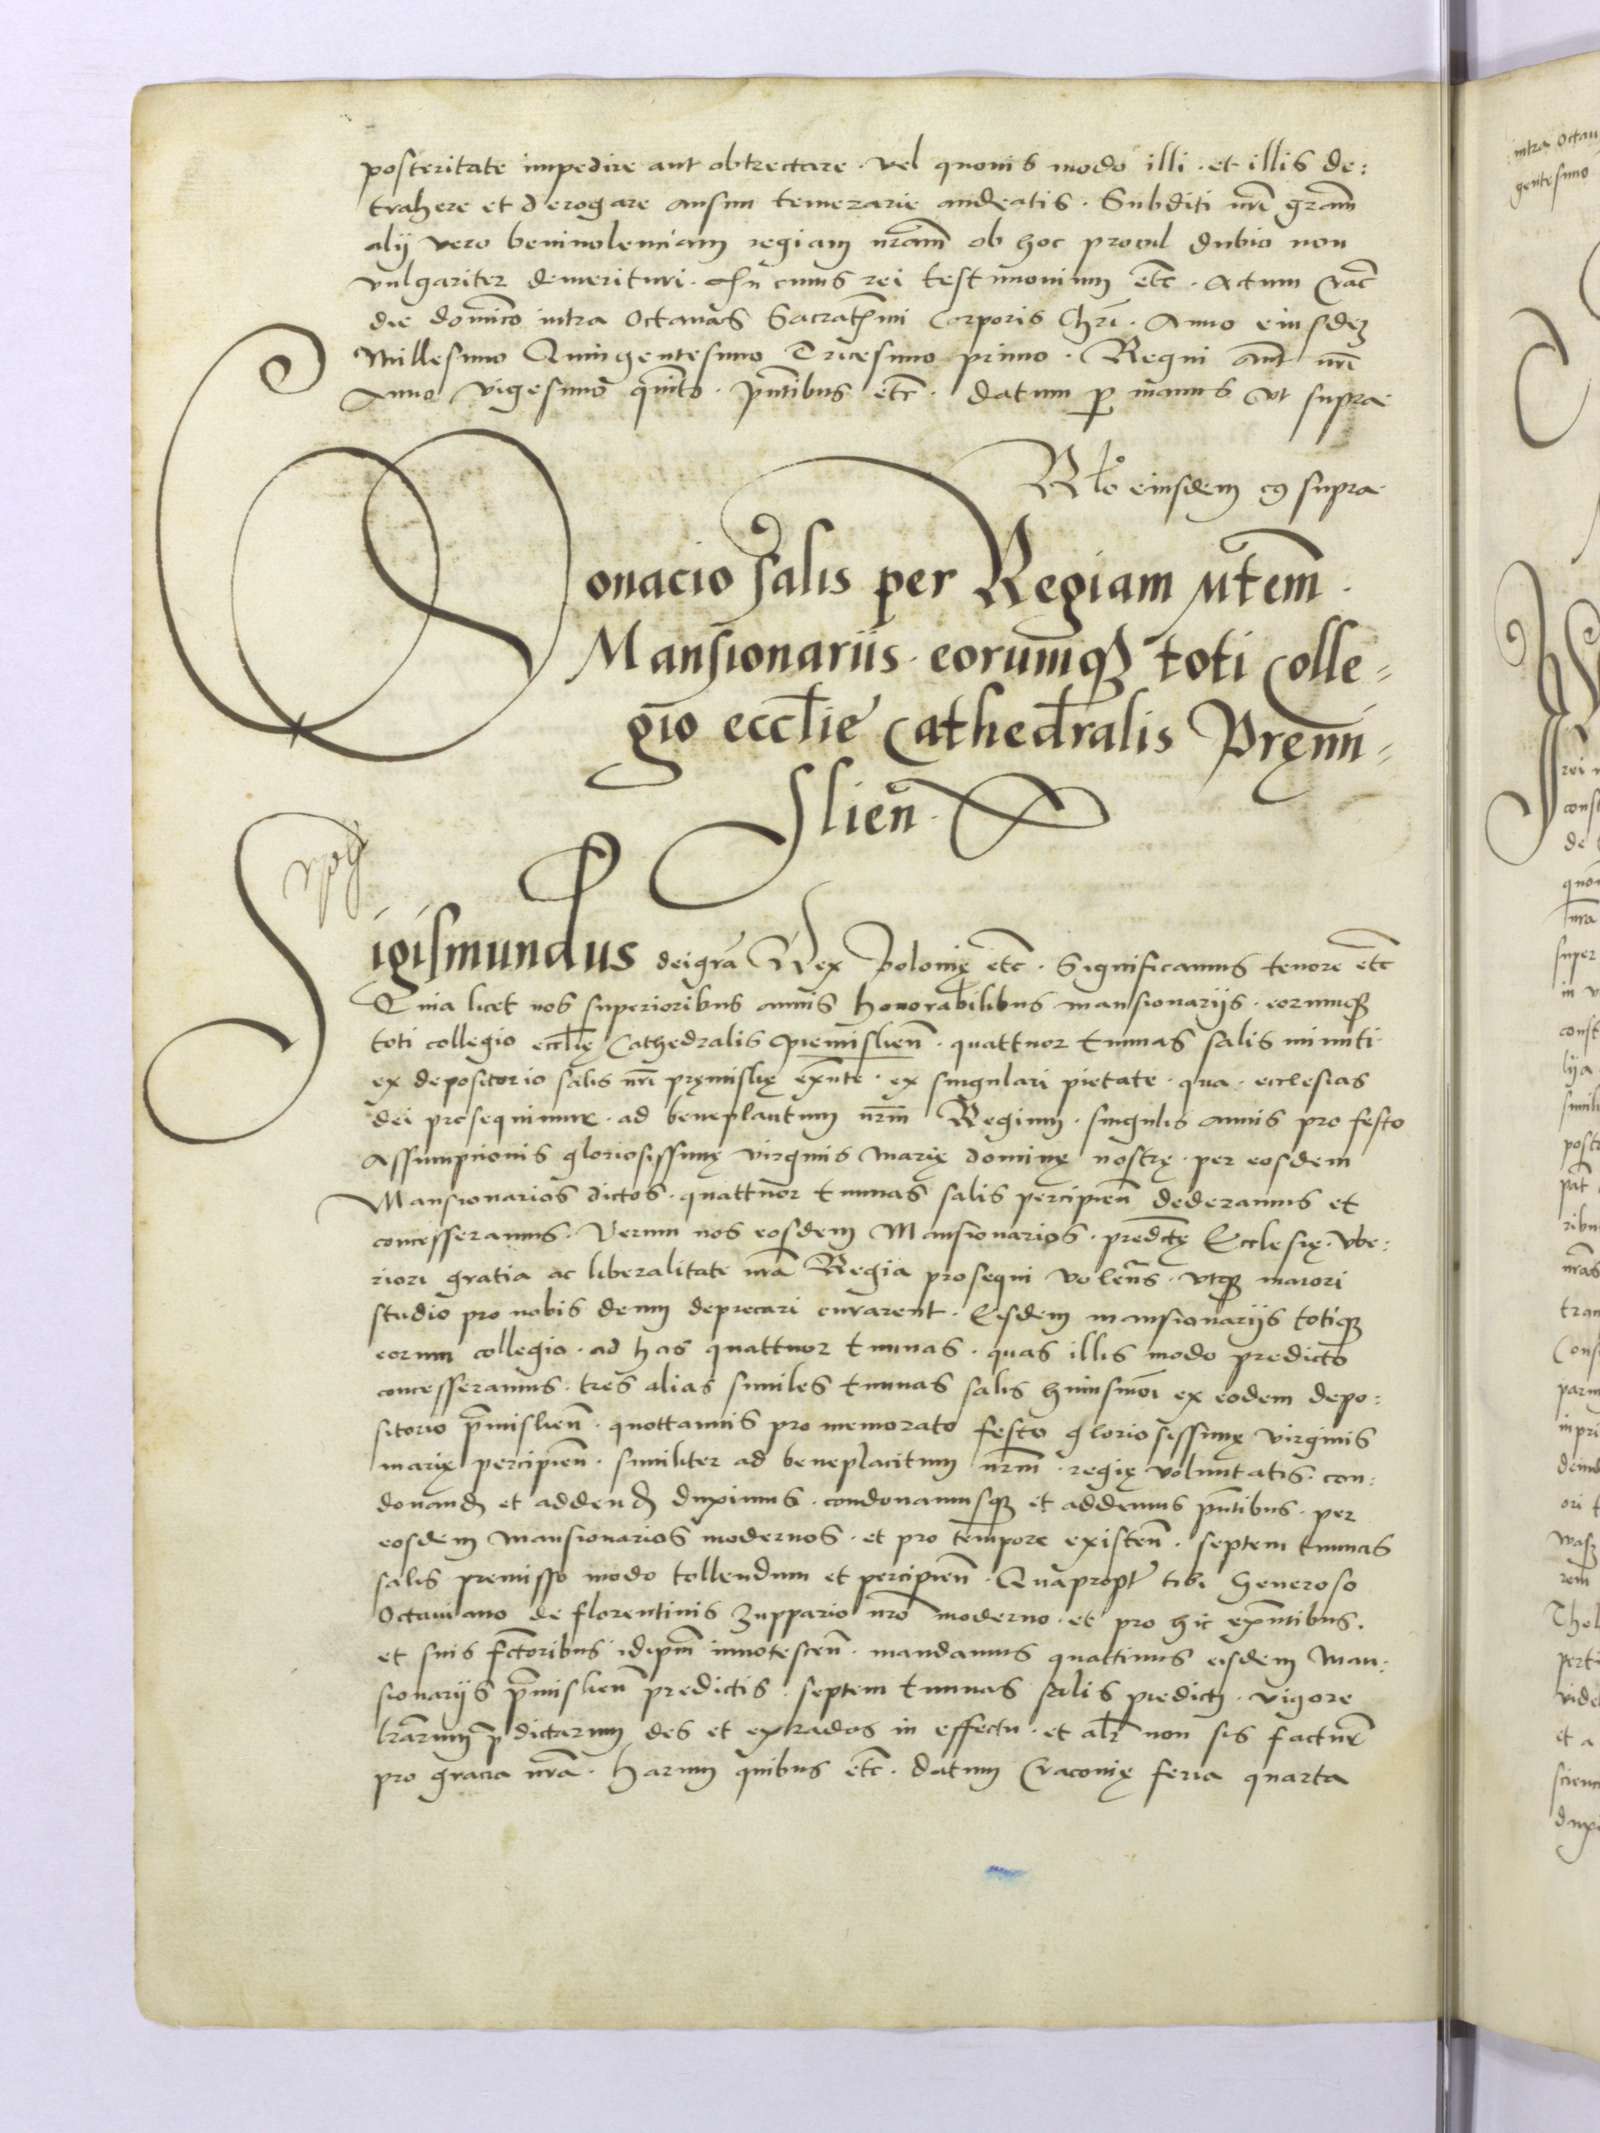 posteritate impedire aut obtrectare · vel quouis modo illi · et illis de:
trahere et derogare ausim temerarie audeatis · Subditi nrī grām
alij vero beniuolentiam regiam nrām ob hoc procul dubio non
vulgariter demerituri · In cuius rei testimonium etc̄ · Actum Crac̄
die domīco intra Octauas Sacratīmi Corporis Chrī · Anno eiusdem
Millesimo Quingentesimo Tricesimo primo · Regni aūt nrī
Anno vigesimo quīto · pn̄tibus etc̄ · datum p̱ manus vt supra
Rlō eiusdem cꝯ supra
Donacio salis per Regiam Mtēm ·
Mansionariis · eorumqꝫ toti Colle-
gio eccl̄ie Cathedralis Pręmi-
slien̄ ·
Sigismundus dei gr̄a Rex Polonię etc̄ · Significamus tenore etc̄
Quia licet nos superioribus annis honorabilibus mansionarijs · eorumqꝫ
toti collegio eccl̄ię Cathedralis Premislien̄ · quattuor tunnas salis minuti ·
ex depositorio salis nrī pręmislię exn̄te · ex singulari pietate · qua · ecclesias
dei prosequimur · ad beneplacitum nrm̄ Regium · singulis annis pro festo
Assumptionis gloriosissimę virginis Marię dominę nostrę · per eosdem
Mansionarios dictos · quattuor tunnas salis percipien̄ dederamus et
concesseramus · Verum nos eosdem Mansionarios · predictę Ecclesię · vbe:
riori gratia ac liberalitate nr̄a Regia prosequi volen̄s · vtqꝫ maiori
studio pro nobis deum deprecari curarent · Eisdem mansionarijs totiqꝫ
eorum collegio · ad has quattuor tunnas · quas illis modo predicto
concesseramus · tres alias similes tunnas salis huiusmōi ex eodem depo:
sitorio p̄mislien̄ · quottannis pro memorato festo gloriosissimę virginis
marię percipien̄ · similiter ad beneplacitum nrm̄ · regię voluntatis · con:
donanḋ et addenḋ duximus · condonamusqꝫ et addemus pn̄tibus · per
eosdem Mansionarios modernos · et pro tempore existen̄ · septem tunnas
salis premisso modo tollendum et percipien̄ · Quapropt̄ tibi Generoso
Octauiano de florentinis Zuppario nr̄o moderno · et pro hic exn̄tibus ·
et suis fctoribus idipm̄ innotescen̄ · mandamus quattinus eisdem Man:
sionarijs p̄mislien̄ predictis · septem tunnas salis predicti · vigore
lrārum p̄dictarum des et extrados in effectu · et alr̄ non sis factur̄
pro gracia nr̄a · harum quibus etc̄ · datum Cracouię feria quarta